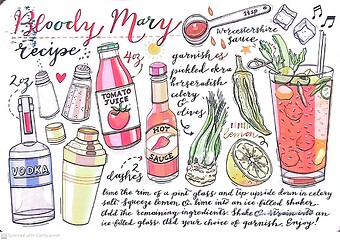 Bloody Mary
recipe
1 tsp
Worcestershire
sauce
2 oz
4 oz
TOMATO
JUICE
garnishes
pickled okra
horseradish
celery
&
olives
HOT
SAUCE
2
dashes
lemon
VODKA
Lime the rim of a pint glass and tip upside down in celery
salt. Squeeze lemon & lime into an ice-filled shaker.
Add the remaining ingredients. Shake & strain into an
ice-filled glass. Add your choice of garnish. Enjoy!
Scanned with CamScanner